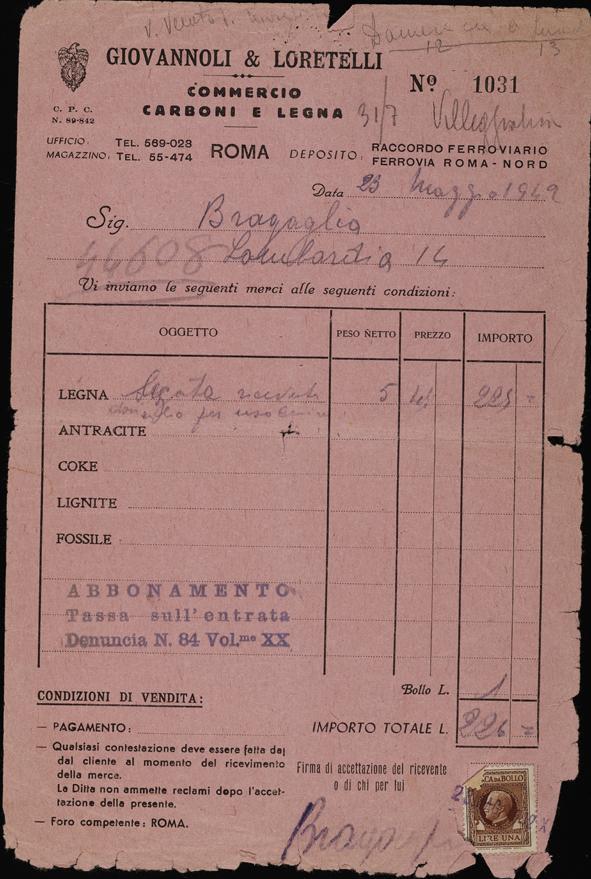 GIOVANNOLI & LORETELLI
COMMERCIO
CARBONI E LEGNA
Nº 1031
C. P. C.
N. 89-842
31/7
UFFICIO: TEL. 569-023
MAGAZZINO: TEL. 55-474
ROMA
DEPOSITO: RACCORDO FERROVIARIO
FERROVIA ROMA-NORD
Data 23 Maggio 1942
Sig. Bragaglia
46608 Lombardia 14
Vi inviamo le seguenti merci alle seguenti condizioni:
OGGETTO PESO NETTO PREZZO IMPORTO
LEGNA 5 225 =
per uso
ANTRACITE
COKE
LIGNITE
FOSSILE
ABBONAMENTO
Tassa sull'entrata
Denuncia N. 84 Vol.me XX
Bollo L. 1
CONDIZIONI DI VENDITA:
IMPORTO TOTALE L. 226 =
— PAGAMENTO:
— Qualsiasi contestazione deve essere fatta dal
dal cliente al momento del ricevimento
della merce.
La Ditta non ammette reclami dopo l'accet-
tazione della presente.
— Foro competente: ROMA.
Firma di accettazione del ricevente
o di chi per lui
CA DA BOLLO
LIRE UNA